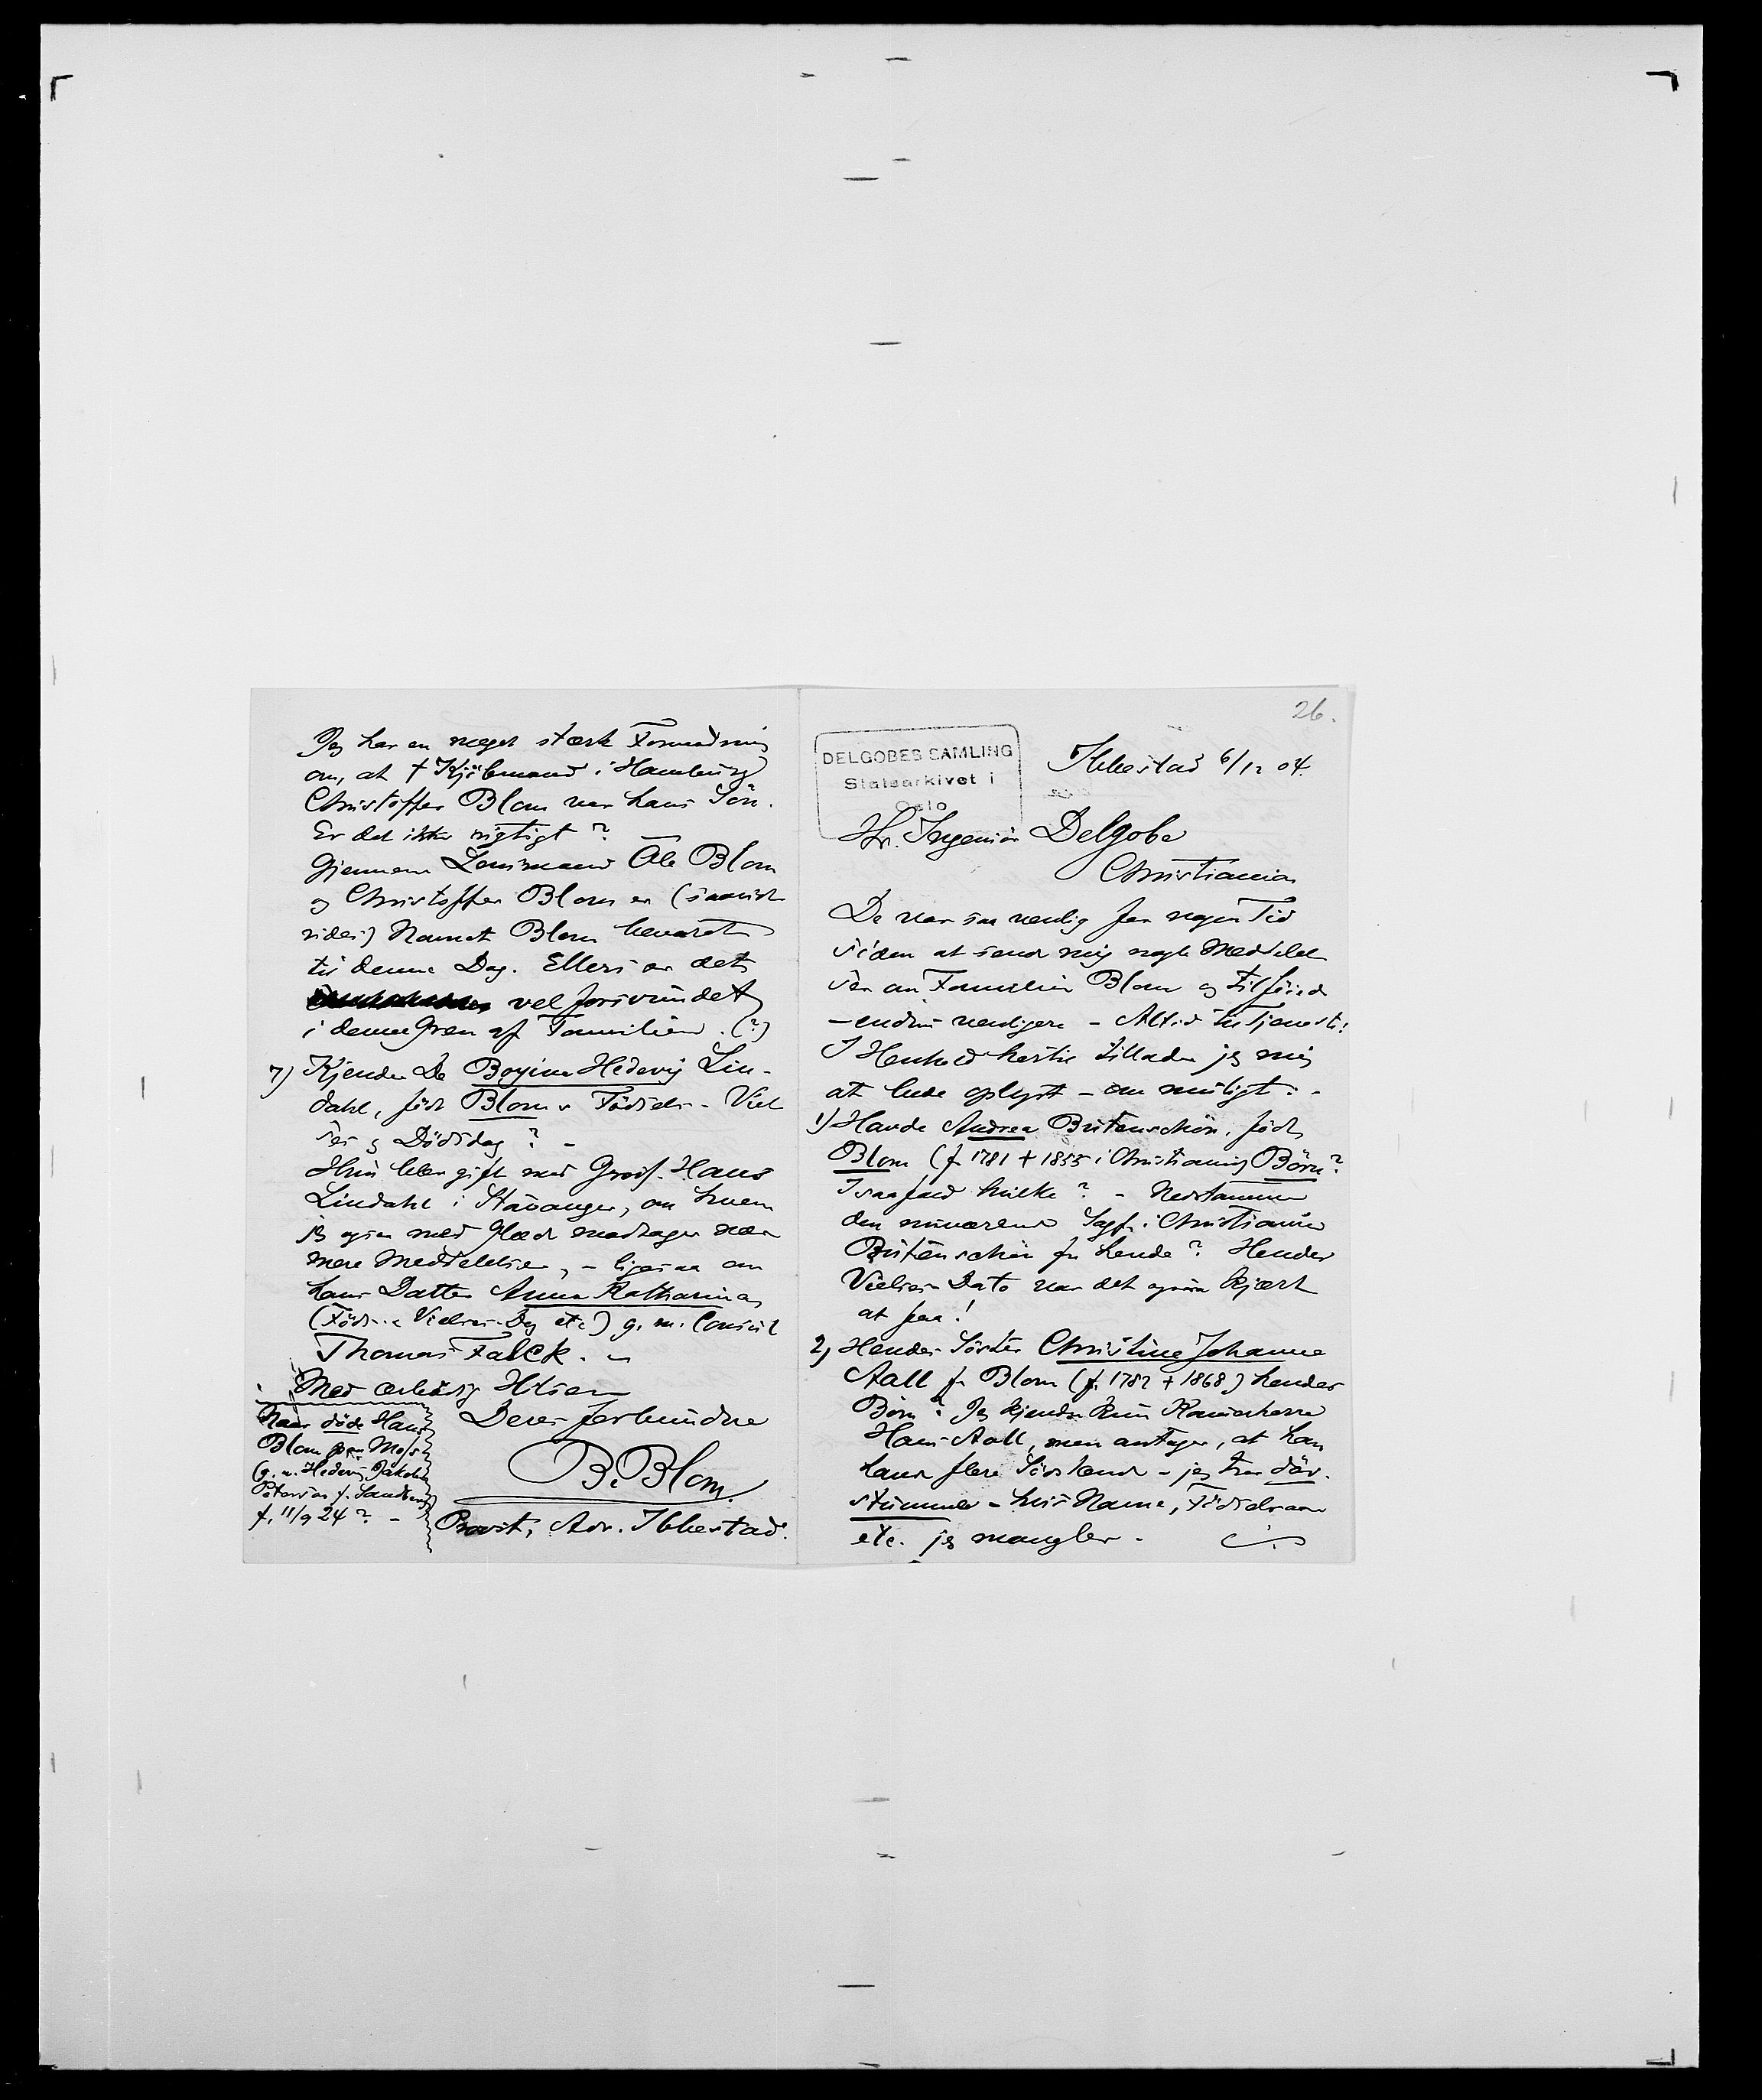 Jeg har en meget stærk Formodning
om, at † Kjöbmand i Hamburg
Christoffer Blom var hans Sön.
Er det ikke rigtigt?
Gjennem Lensmand Ole Blom
og Christoffer Blom er (saavidt
vides) Navnet Blom bevaret
til denne Dag. Ellers er det
vel forsvundet
i denne Gren af Familien. (?)
7) Kjender De Boyine Hedevig Lin-
dahl, född Blom's Födsels- Viel
ses og Dödsdag? -
Hun blev gift med Gross. Hans
Lindahl i Stavanger, om hvem
jeg ogsaa med Glæde modtager nær
mere Meddelelser, - ligesaa om
hans Datter Anna Katharina
(Föds- Vielses-Dag etc) g. m. Consul
Thomas Falck. -
Med ærbödig Hilsen
Deres forbundne
B. Blom.
Provst, Adr. Ibbestad.
Naar döde Hans
Blom paa Moss
(g. m. Hedevig Jakobin
Petersen f. Sandberg
f. 11/9 24? -
26.
DELGOBES SAMLING
Statsarkivet i
Oslo
Ibbestad 6/12 04.
Hr. Ingeniör Delgobe
Christiania
De var saa venlig for nogen Tid
siden at sende mig nogle Meddelel
ser om Familien Blom og tilföied
- endnu venligere - Altid til Tjeneste!
I Henhold hertil tillader jeg mig
at bede oplyst - om muligt: -
1) Havde Andrea Bütenschön, född
Blom (f. 1781 † 1855 i Christiania) Börn?
I saafald hvilke? - Nedstammer
den nuværende Sagf. i Christiania
Bütenschön fra hende? Hendes
Vielses-Dato var det ogsaa kjært
at faa!
2) Hendes Söster Christine Johanne
Aall f. Blom (f. 1782 † 1868) hendes
Börn? Jeg kjender kun Kammerherre
Hans Aall, men antager, at han
havde flere Södskende - jeg tror döv-
stumme - hvis Navne, Födselsaar
etc. jeg mangler. -